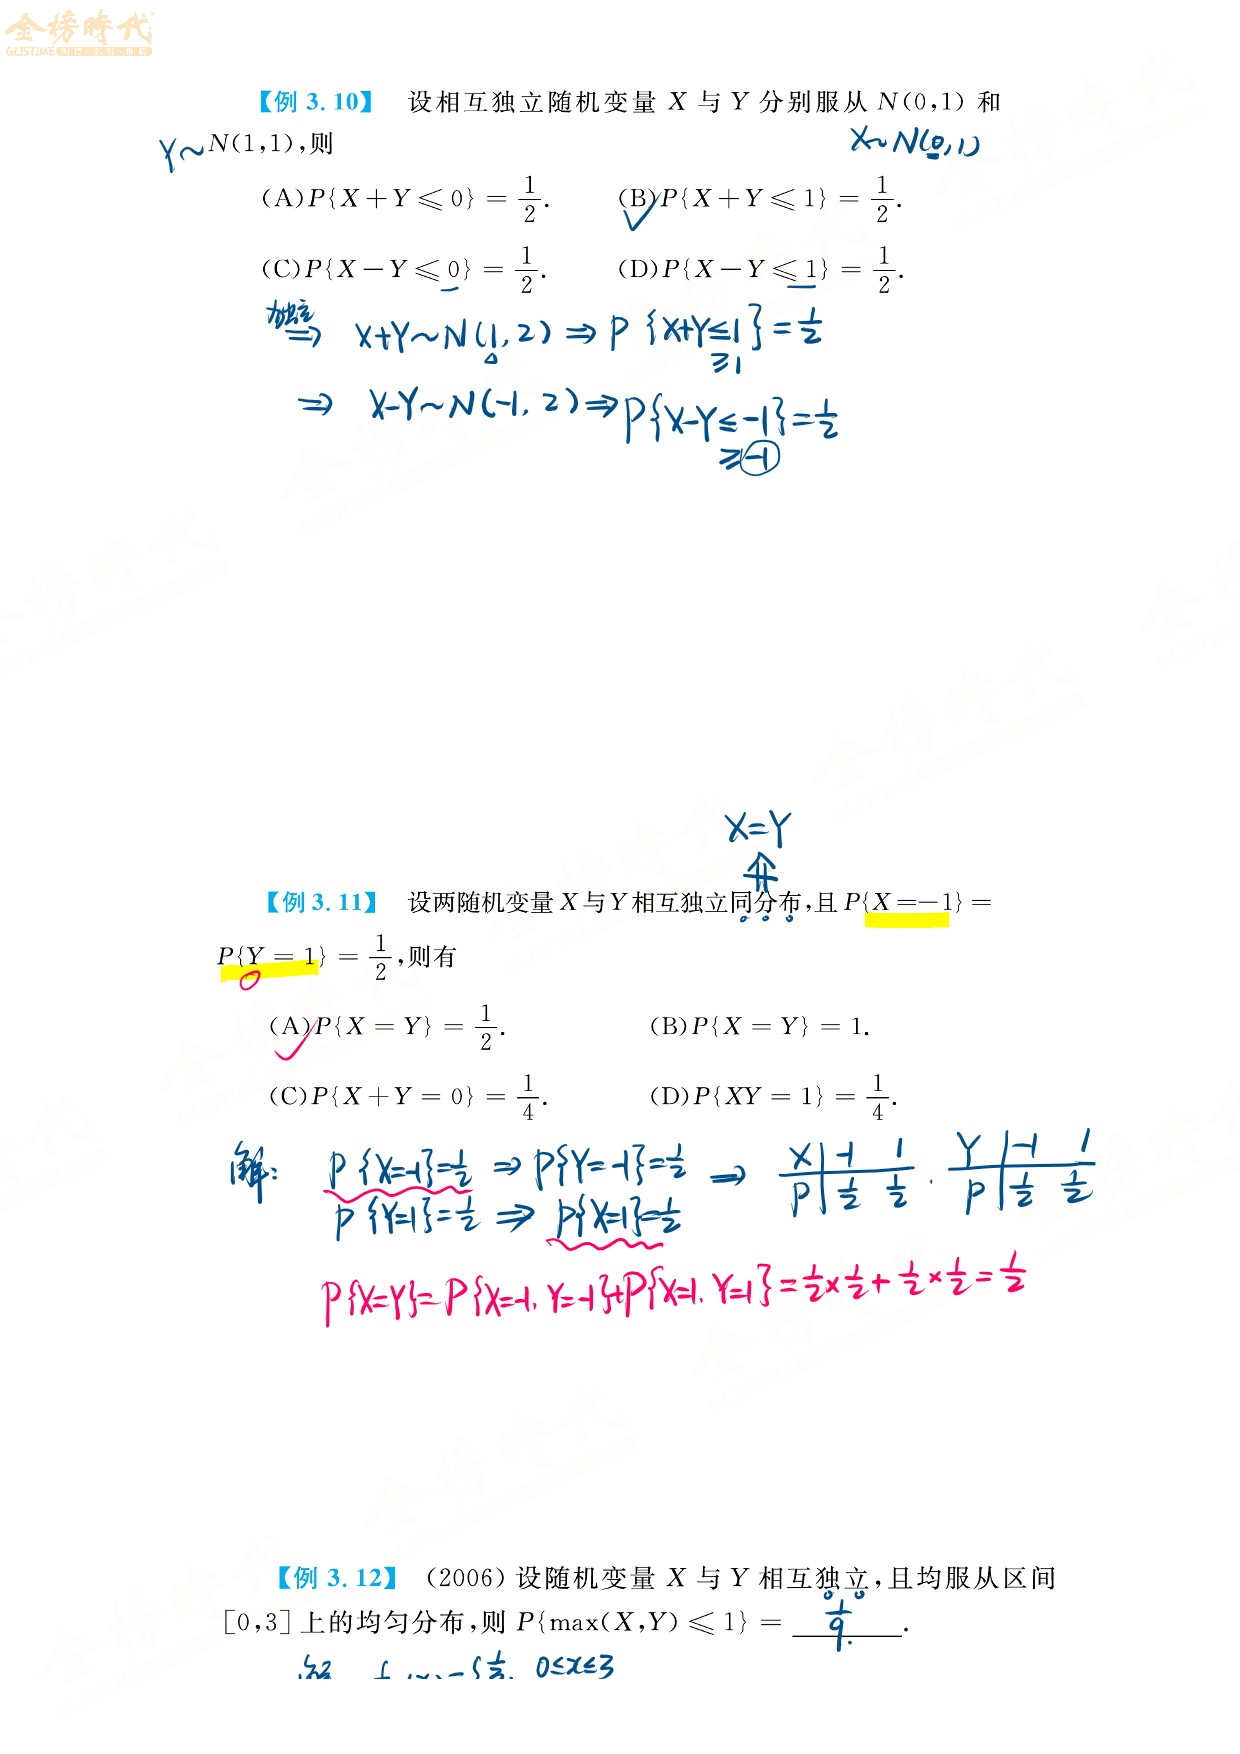 金榜時代
【例 3.10】 设相互独立随机变量 X 与 Y 分别服从 N(0,1) 和
Y~N(1,1),则
X~N(0,1)
(A)P{X+Y⩽0} = 1/2. (B)P{X+Y⩽1} = 1/2.
(C)P{X-Y⩽0} = 1/2. (D)P{X-Y⩽1} = 1/2.
独立
⇒ X+Y~N(1,2) ⇒ P{X+Y≤1}=1/2
≥1
⇒ X-Y~N(-1,2) ⇒ P{X-Y≤-1}=1/2
≥-1
X=Y
⇑
【例 3.11】 设两随机变量 X 与 Y 相互独立同分布,且 P{X=-1} =
P{Y = 1} = 1/2,则有
(A)P{X = Y} = 1/2. (B)P{X = Y} = 1.
(C)P{X+Y = 0} = 1/4. (D)P{XY = 1} = 1/4.
解: P{X=-1}=1/2 ⇒ P{Y=-1}=1/2 ⇒ X -1 1 . Y -1 1
P{Y=1}=1/2 ⇒ P{X=1}=1/2 P 1/2 1/2 P 1/2 1/2
P{X=Y}=P{X=-1,Y=-1}+P{X=1,Y=1}=1/2×1/2+1/2×1/2=1/2
【例 3.12】 (2006) 设随机变量 X 与 Y 相互独立,且均服从区间
[0,3] 上的均匀分布,则 P{max(X,Y)⩽1} = 1/9.
0≤x≤3